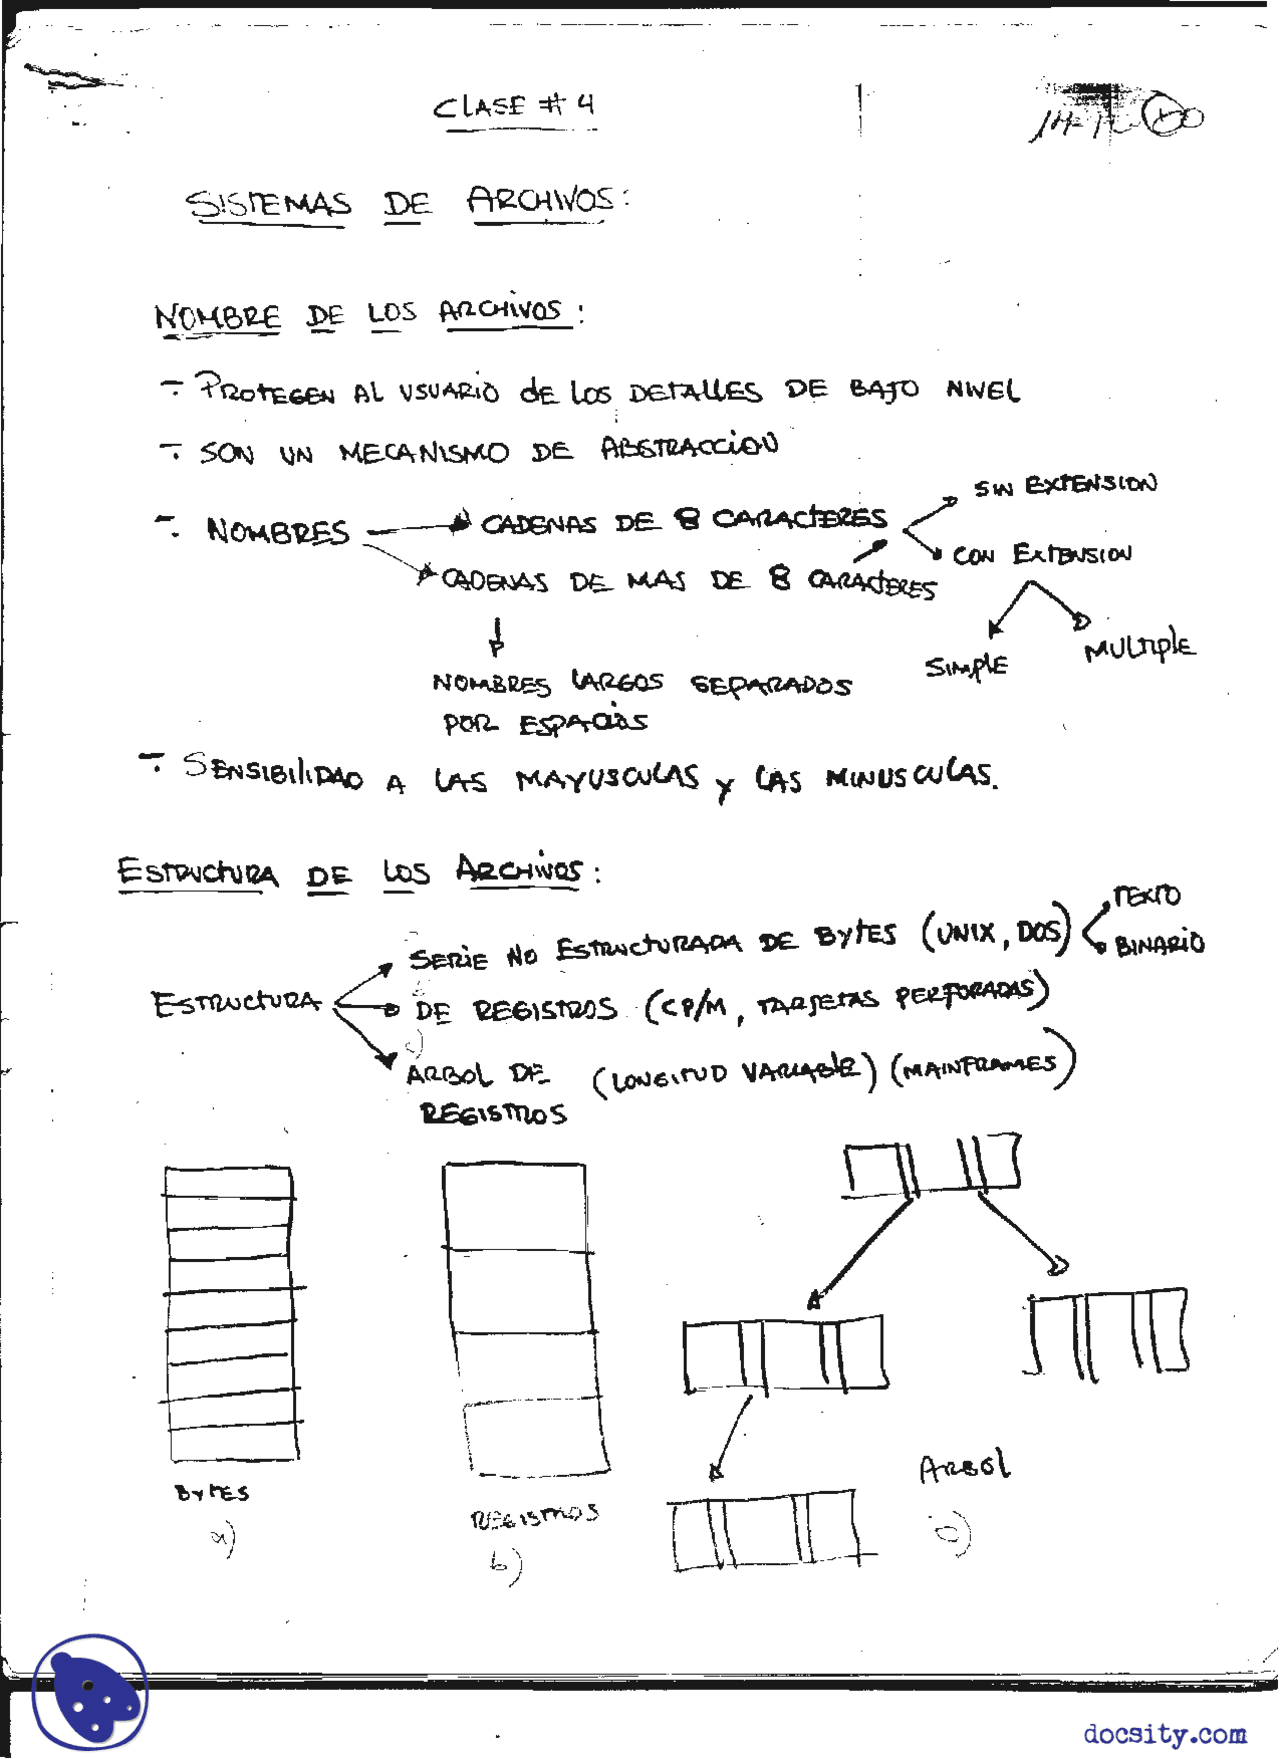 CLASE # 4
SISTEMAS DE ARCHIVOS:
NOMBRE DE LOS ARCHIVOS:
- PROTEGEN AL USUARIO de LOS DETALLES DE BAJO NIVEL
- SON UN MECANISMO DE ABSTRACCION
SIN EXTENSION
- NOMBRES CADENAS DE 8 CARACTERES
CON EXTENSION
CADENAS DE MAS DE 8 CARACTERES
SIMPLE MULTIPLE
NOMBRES LARGOS SEPARADOS
POR ESPACIOS
- SENSIBILIDAD A LAS MAYUSCULAS y LAS MINUSCULAS.
ESTRUCTURA DE LOS ARCHIVOS:
TEXTO
SERIE NO ESTRUCTURADA DE BYTES (UNIX, DOS)
BINARIO
ESTRUCTURA DE REGISTROS (CP/M, TARJETAS PERFORADAS)
c)
ARBOL DE (LONGITUD VARIABLE) (MAINFRAMES)
REGISTROS
BYTES
a)
REGISTROS
b)
ARBOL
c)
docsity.com